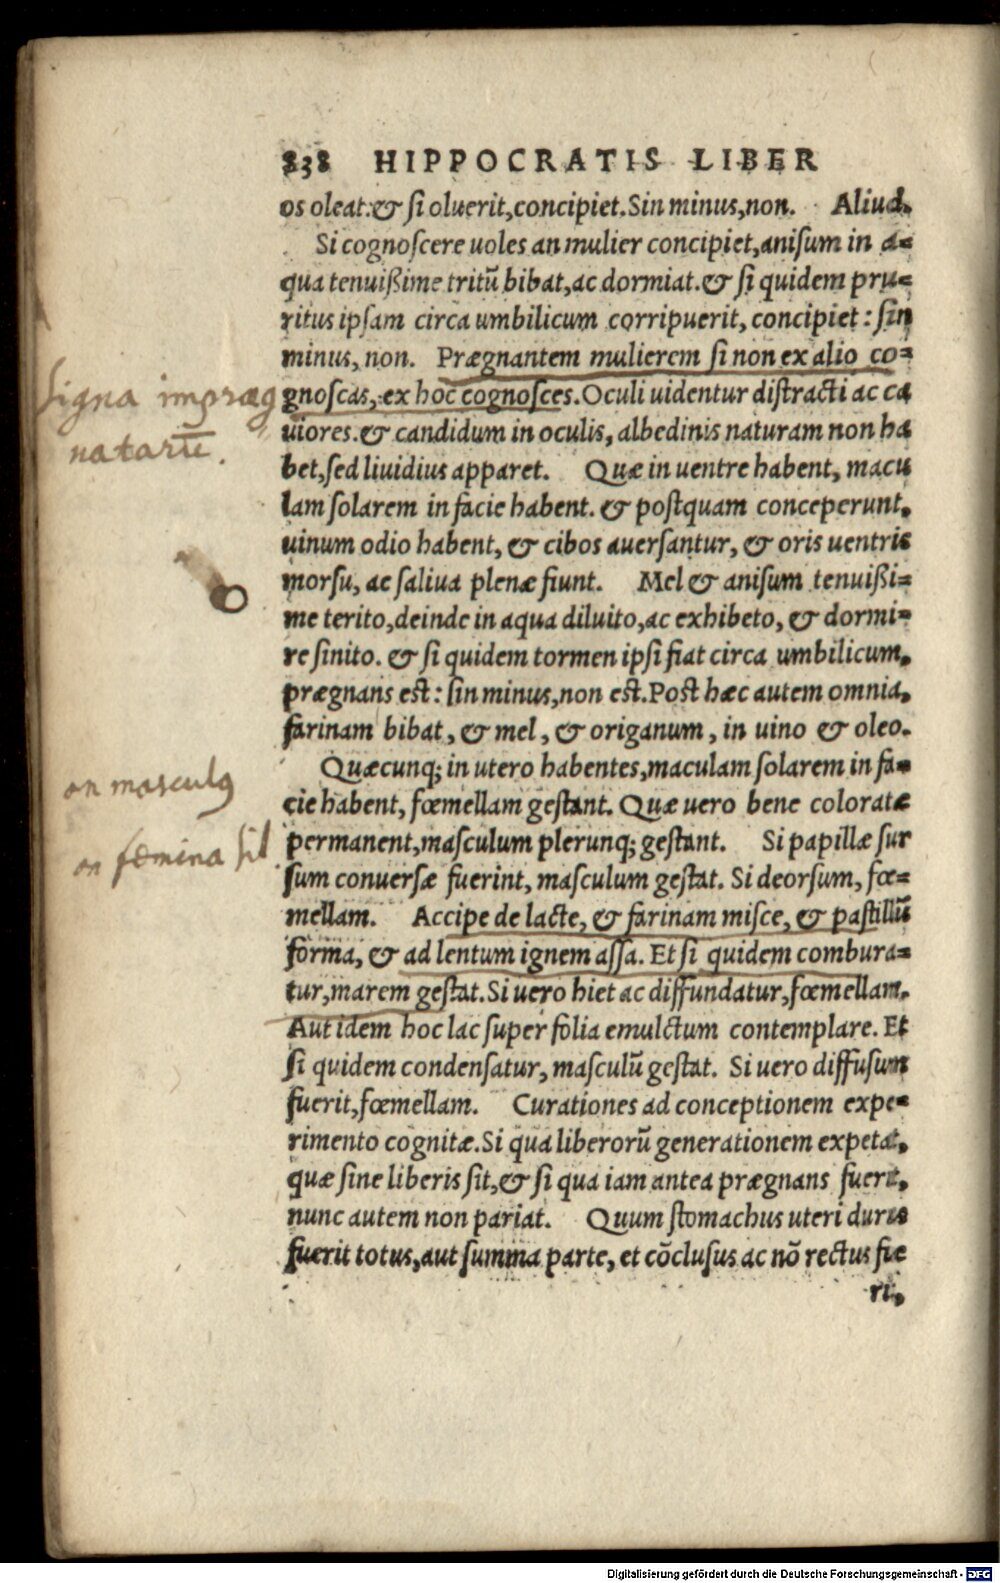 838 HIPPOCRATIS LIBER
os oleat. & si oluerit, concipiet. Sin minus, non. Aliud.
Si cognoscere uoles an mulier concipiet, anisum in a-
qua tenuißime tritũ bibat, ac dormiat. & si quidem pru-
ritus ipsam circa umbilicum corripuerit, concipiet: sin
minus, non. Prægnantem mulierem si non ex alio co-
signa impræg
gnoscas, ex hoc cognosces. Oculi uidentur distracti ac ca
natarũ.
uiores. & candidum in oculis, albedinis naturam non ha
bet, sed liuidius apparet. Quæ in uentre habent, macu
lam solarem in facie habent. & postquam conceperunt,
uinum odio habent, & cibos auersantur, & oris uentris
morsu, ac saliua plenæ fiunt. Mel & anisum tenuißi-
me terito, deinde in aqua diluito, ac exhibeto, & dormi-
re sinito. & si quidem tormen ipsi fiat circa umbilicum,
prægnans est: sin minus, non est. Post hæc autem omnia,
farinam bibat, & mel, & origanum, in uino & oleo.
Quæcunq; in utero habentes, maculam solarem in fa-
an masculus
cie habent, fœmellam gestant. Quæ uero bene coloratæ
an fœmina sit
permanent, masculum plerunq; gestant. Si papillæ sur
sum conuersæ fuerint, masculum gestat. Si deorsum, fœ-
mellam. Accipe de lacte, & farinam misce, & pastillũ
forma, & ad lentum ignem assa. Et si quidem combura-
tur, marem gestat. Si uero hiet ac diffundatur, fœmellam.
Aut idem hoc lac super folia emulctum contemplare. Et
si quidem condensatur, masculũ gestat. Si uero diffusum
fuerit, fœmellam. Curationes ad conceptionem expe-
rimento cognitæ. Si qua liberorũ generationem expetat,
quæ sine liberis sit, & si qua iam antea prægnans fuerit,
nunc autem non pariat. Quum stomachus uteri durus
fuerit totus, aut summa parte, et cõclusus ac nõ rectus fie
ri,
Digitalisierung gefördert durch die Deutsche Forschungsgemeinschaft - DFG